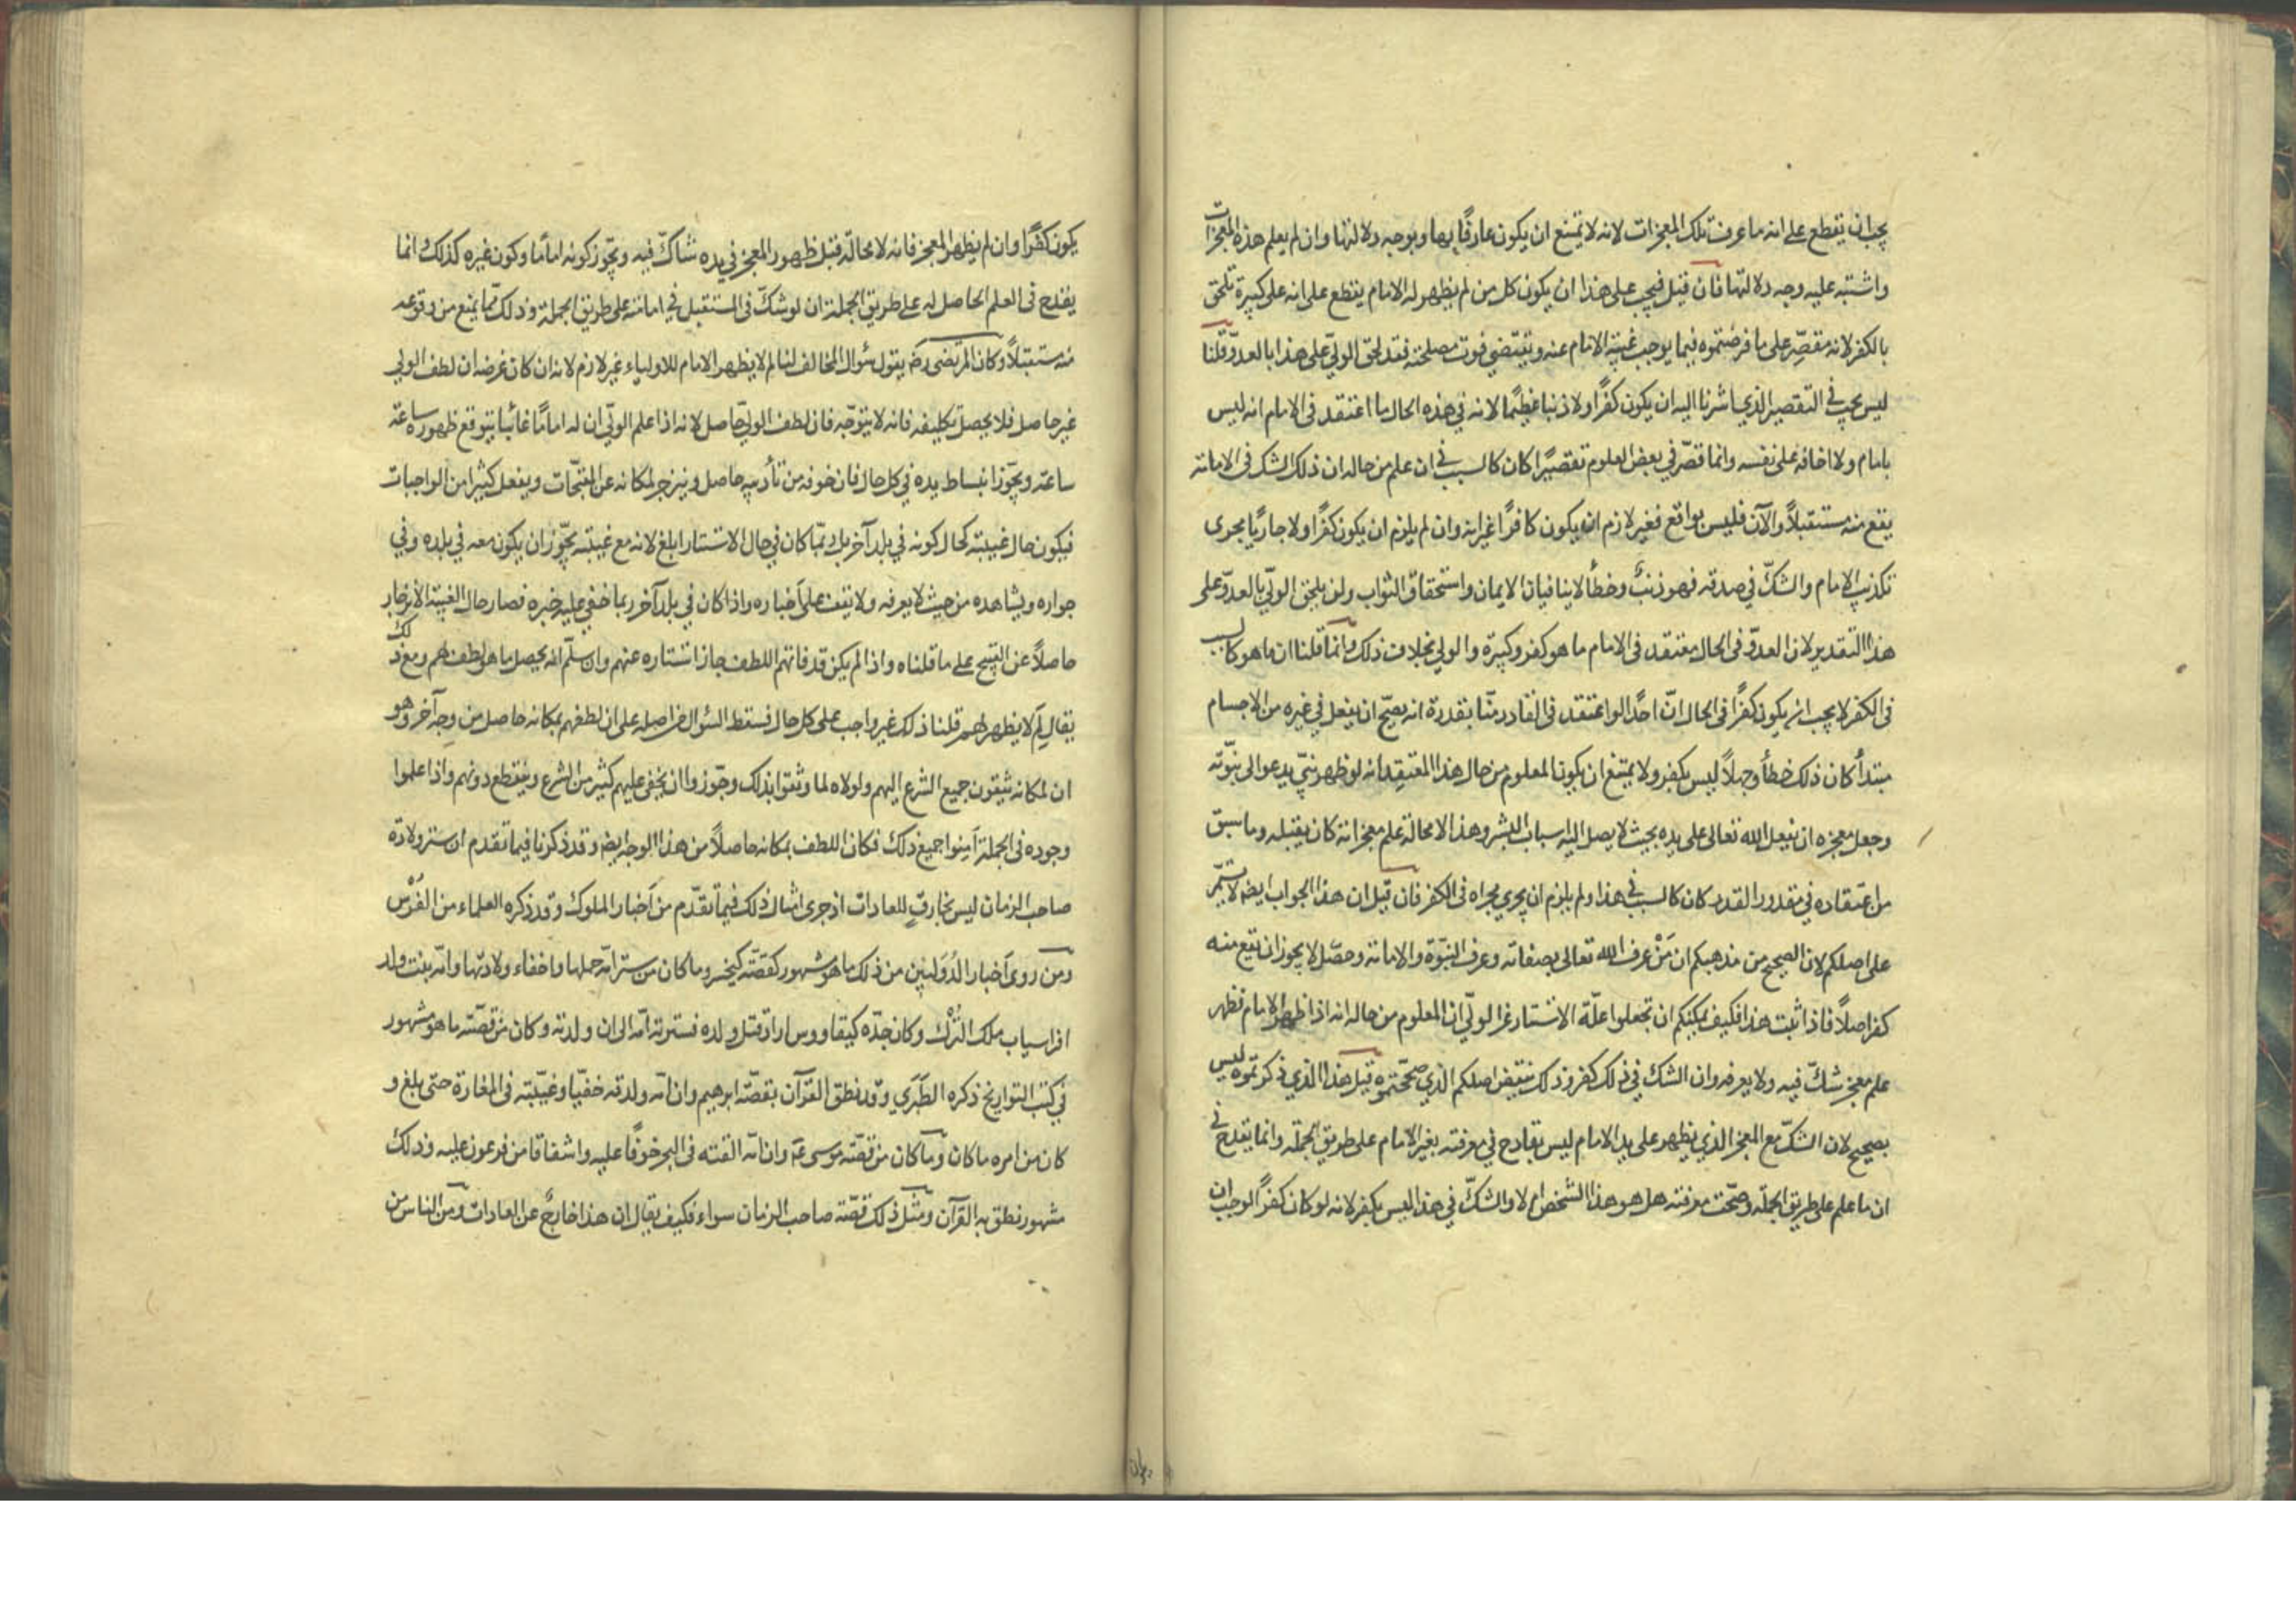 يجب ان يقطع على انه ما عرف تلك المعجزات لانه لا يمتنع ان يكون عارفًا بها وبوجه دلالتها وان لم يعلم هذه المعجزات
واشتبه عليه وجه دلالتها فان قيل فيجب على هذا ان يكون كل من لم يظهر له الامام يقطع على انه على كبيرة تلحق
بالكفر لانه مقصّر على ما فرضتموه فيما يوجب غيبة الامام عنه ويقتضي فوت مصلحته فقد لحق الوليّ على هذا بالعدوّ قلنا
ليس يجب في التقصير الذي اشرنا اليه ان يكون كفرًا ولا ذنبا عظيمًا لانه في هذه الحال ما اعتقد فى الامام انه ليس
بامام ولا اخافه على نفسه وانما قصّر في بعض العلوم تقصيرًا كان كالسبب في ان علم من حاله ان ذلك الشك فى الامامة
يقع منه مستقبلاً والآن فليس بواقع فغير لازم ان يكون كافرًا غير انه وان لم يلزم ان يكون كفرًا ولا جاريًا مجرى
تكذيب الامام والشكّ في صدقه فهو ذنبٌ وخطأ لا ينافيان الايمان واستحقاق الثواب ولن يلحق الوليّ بالعدوّ على
هذا التقدير لان العدوّ فى الحال معتقد فى الامام ما هو كفر وكبيرة والولي بخلاف ذلك وانما قلنا ان ما هو كالسبب
فى الكفر لا يجب ان يكون كفرًا فى الحال انّ احدًا لو اعتقد فى القادر منّا بقدرة انه يصحّ ان يفعل في غيره من الاجسام
مبتدأً كان ذلك خطأً وجهلاً ليس بكفر ولا يمتنع ان يكون المعلوم من حال هذا المعتقِد انه لو ظهر نبيّ يدعو الى نبوّته
وجعل معجزه ان يفعل الله تعالى على يده بحيث لا يصل اليه اسباب البشر وهذا لا محالة علم معجز انه كان يقبله وما سبق
من اعتقاده في مقدور القدر كان كالسبب في هذا ولم يلزم ان يجري مجراه فى الكفر فان قيل ان هذا الجواب ايضه لا يستمّر
على اصلكم لان الصحيح من مذهبكم ان مَنْ عرف الله تعالى بصفاته وعرف النبوّة والامامة وحصّل لا يجوز ان تقع منه
كفر اصلاً فاذا ثبت هذا فكيف يمكنكم ان تجعلوا علّة الاستتار عن الوليّ ان المعلوم من حاله انه اذا ظهر الامام فظهر
علم معجز شكّ فيه ولا يعرفه وان الشك في ذلك كفر وذلك ينقض اصلكم الذي صححتموه قيل هذا الذي ذكرتموه ليس
بصحيح لان الشكّ مع المعجز الذي يظهر على يد الامام ليس بقادح في معرفته بغير الامام على طريق الجملة وانما يقدح في
ان ما علم على طريق الجملة وصحّت معرفته هل هو هذا الشخص ام لا والشكّ في هذا ليس بكفر لانه لو كان كفرًا لوجب ان
يكون كفرًا وان لم يظهر المعجز فانه لا محالة قبل ظهور المعجز في يده شاكّ فيه ويجّوز كونه امامًا وكون غيره كذلك وانما
يقدح فى العلم الحاصل له على طريق الجملة ان لو شكّ فى المستقبل في امامته على طريق الجملة وذلك ممّا يمنع من وقوعه
منه مستقبلاً وكان المرتضى رضه يقول سُؤال المخالف لنا لم لا يظهر الامام للاولياء غير لازم لانه ان كان غرضه ان لطف الولي
غير حاصل فلا يحصل تكليفه فانه لا يتوّجه فان لطف الوليّ حاصل لانه اذا علم الوليّ ان له امامًا غائبا يتوقع ظهوره ساعة
ساعة ويجّوز انبساط يده في كل حال فان خوفه من تأديبه حاصل وينزجر لمكانه عن المقبّحات ويفعل كثيرا من الواجبات
فيكون حال غيبته كحال كونه في بلد آخر بل ربّما كان في حال الاستتار ابلغ لانه مع غيبته يجّوز ان يكون معه في بلده وفي
جواره ويشاهده من حيث لا يعرفه ولا يقف على اَخباره واذا كان في بلد آخر ربما خفي عليه خبره فصار حال الغيبة الانزجار
حاصلاً عن القبيح على ما قلناه واذا لم يكن قد فاتهم اللطف جاز استتاره عنهم وان سلّم انه يحصل ما هو لطف لهم ومع ذلك
يقال لِمَ لا يظهر لهم قلنا ذلك غير واجب على كل حال فسقط السؤال من اصله على ان لطفهم بمكانه حاصل من وجه آخر وهو
ان لمكانه يثقون جميع الشرع اليهم ولولاه لما وثقوا بذلك وجّوزوا ان يخفى عليهم كثير من الشرع وينقطع دونهم واذا علموا
وجوده فى الجملة اَمِنوا جميع ذلك فكان اللطف بمكانه حاصلاً من هذا الوجه ايضه وقد ذكرنا فيما تقدم ان ستر ولادة
صاحب الزمان ليس بخارقٍ للعادات اذ جرى امثال ذلك فيما تقدّم من اَخبار الملوك وقد ذكره العلماء من الفُرْس
ومن روى اَخبار الدُوَلَتين من ذلك ما هو مشهور كقصّة كيخسرو وما كان من ستر اُمّه حملها واخفاء ولادتها واُمّه بنت ولد
افراسياب ملك التُرْك وكان جدّه كيقاووس اراد قتل ولده فسترته اُمّه الى ان ولدته وكان من قصّته ما هو مشهور
في كتب التواريخ ذكره الطَبَري وقد نطق القرآن بقصّة ابرهيم وان امّه ولدته خفيّا وغيّبته فى المغارة حتى بلغ و
كان من امره ما كان وما كان من قصّة موسى عم وان امّه القته فى البحر خوفًا عليه واشفاقا من فرعون عليه وذلك
مشهور نطق به القرآن ومثل ذلك قصّة صاحب الزمان سواء فكيف يقال ان هذا خارجٌ عن العادات ومن الناس من